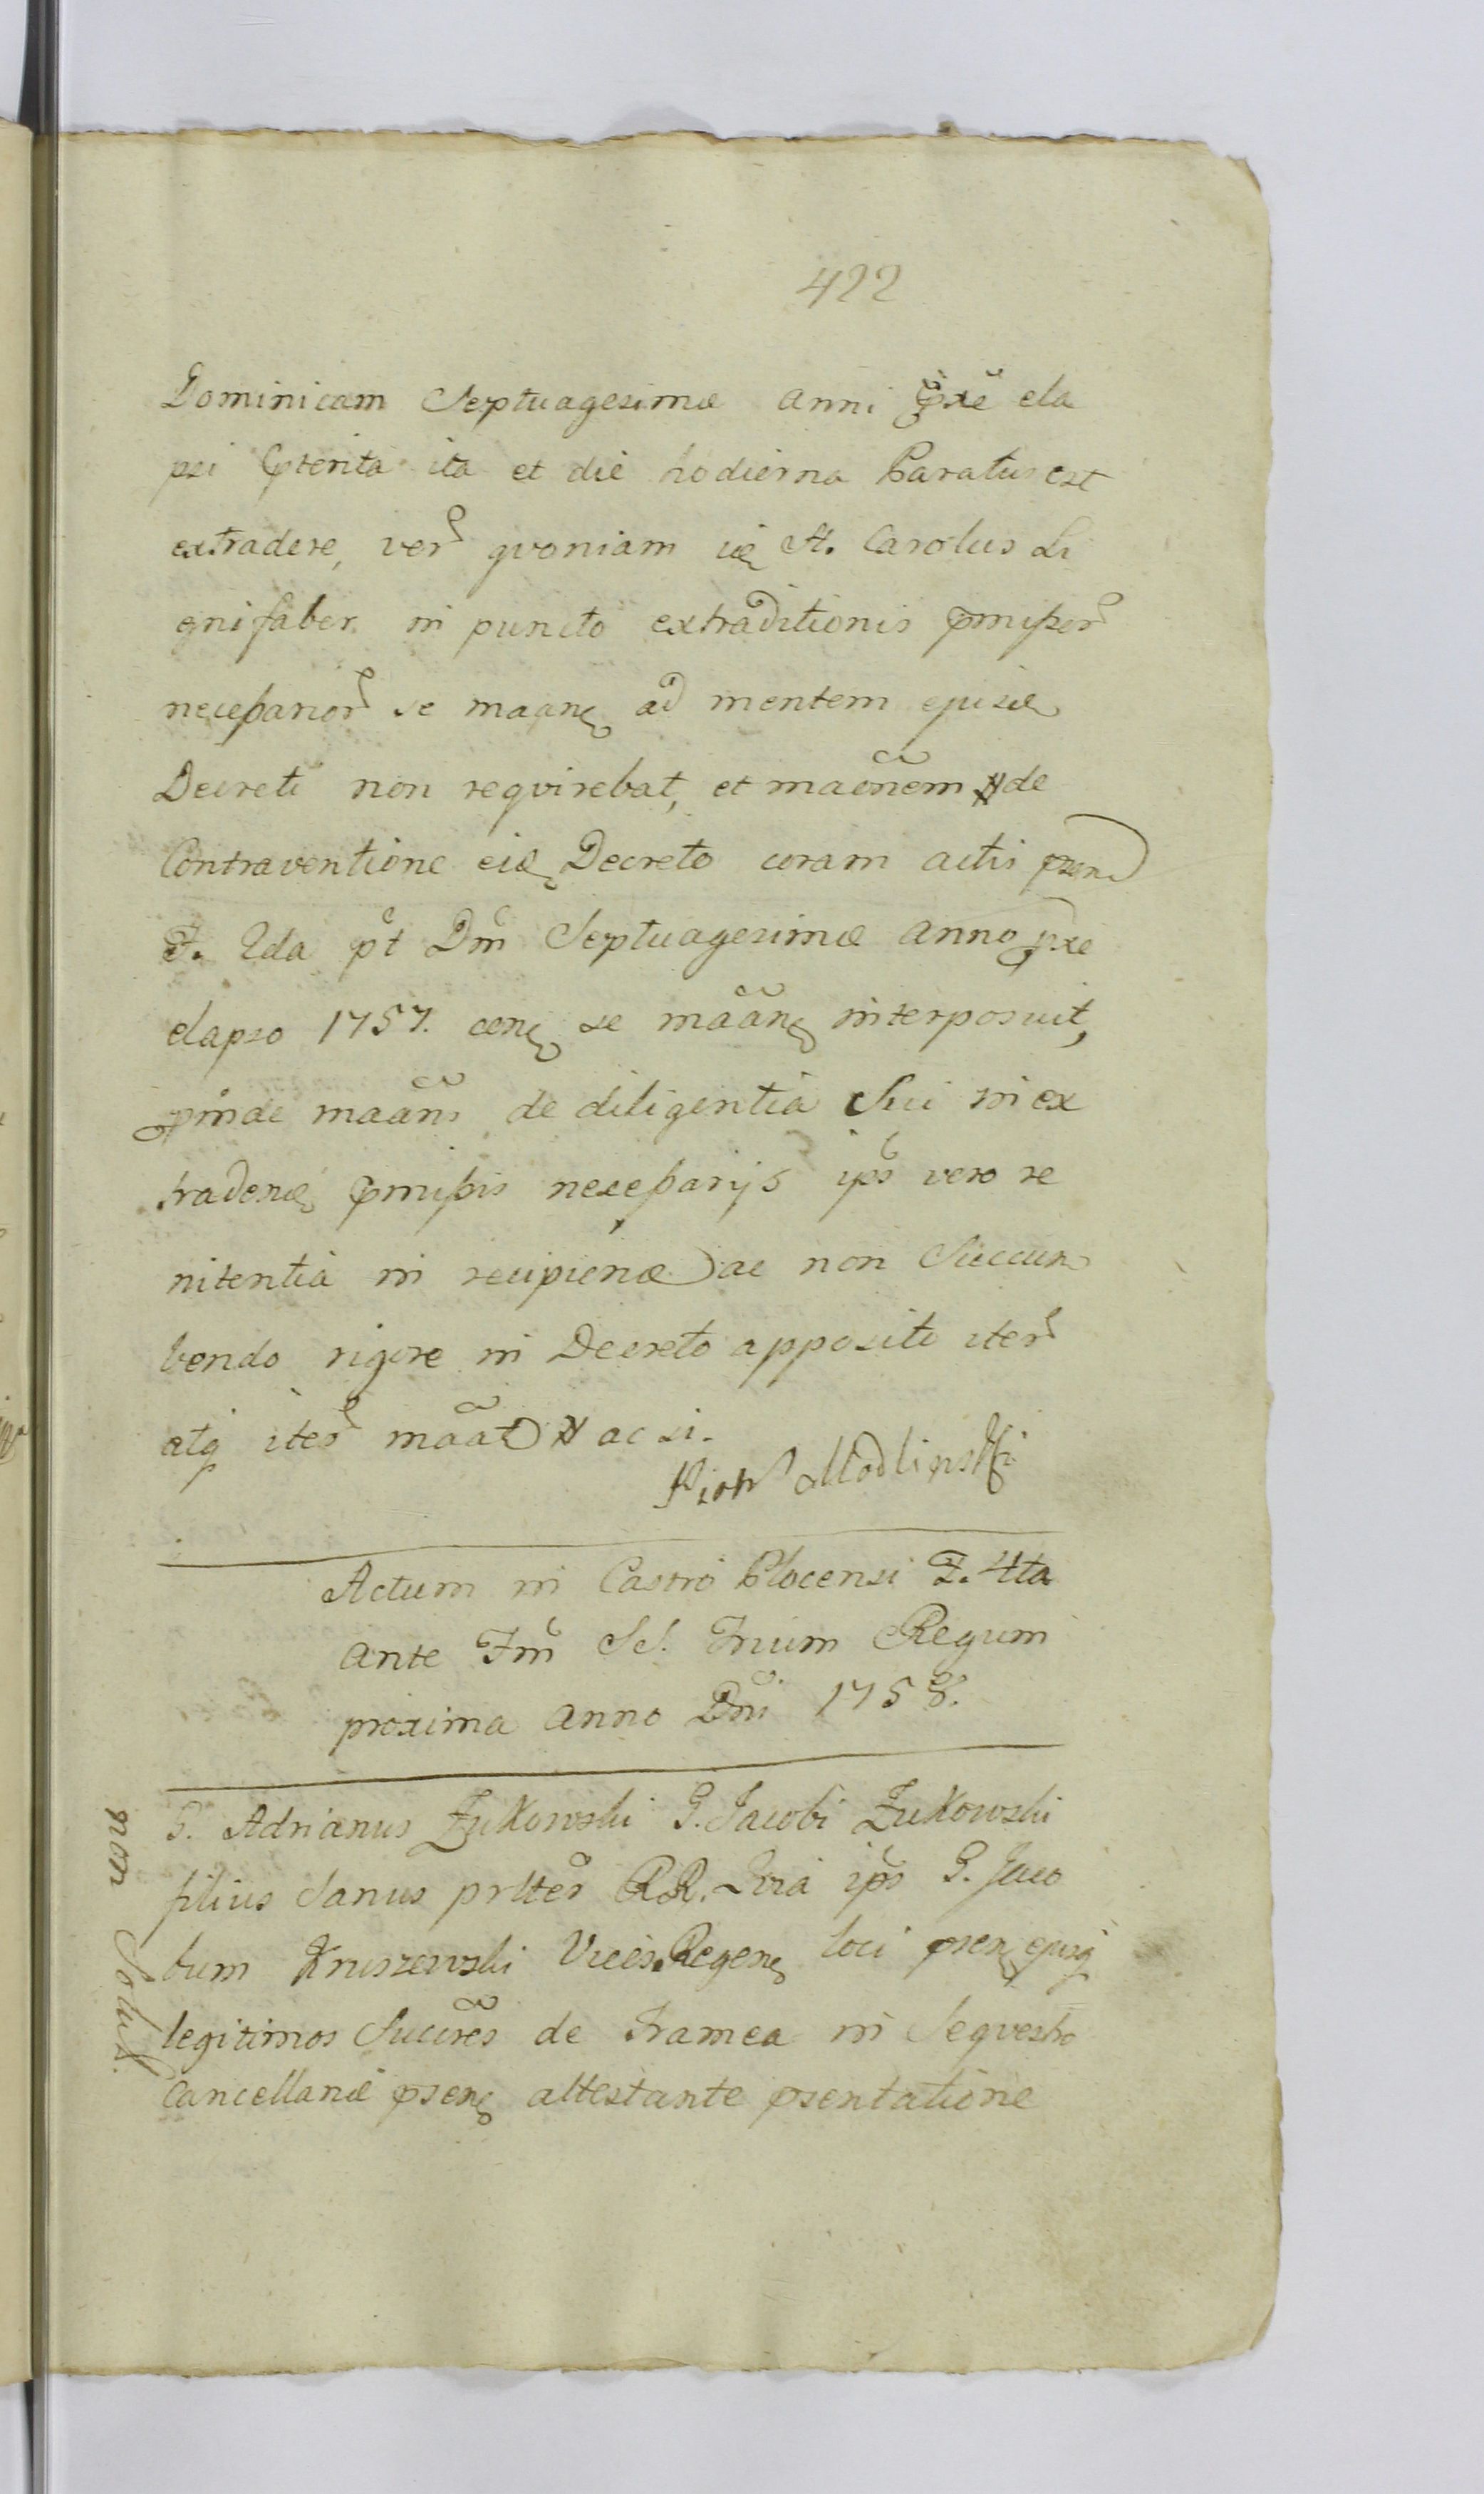 422
Dominicam Septuagesimæ anni pxe ela
psi pterita ita et die hodierna Paratus est
extradere, ver qvoniam A. Carolus Li
gnifaber in puncto extraditionis pmißor
neceßarior se maane ad mentem ejusd
Decreti non reqvirebat, et maõnem de
Contraventione eid Decreto coram actis psen
F. 2da pt Dm Septuagesimæ anno pxe
elapso 1757. cone se maane interposuit,
pinde maans de diligentia Sui in ex
tradend pmißis neceßarijs ips vero re
nitentia in recipiend ac non Succum
bendo rigore in Decreto apposito iter
atq iter maat ac si.
Piotr Modlinski
Actum in Castro Plocensi F. 4ta
ante Fm SS. Trium Regum
proxima anno Dni 1758.
G. Adrianus Żukowski G. Jacobi Żukowski
filius Sanus prltter RR. Lvia ips G. Jaco
bum Kruszewski Vices Regene loci psen ejusq
legitimos Succres de Framea in Seqvestro
Cancellariæ psene attestante psentatione
non Solut.